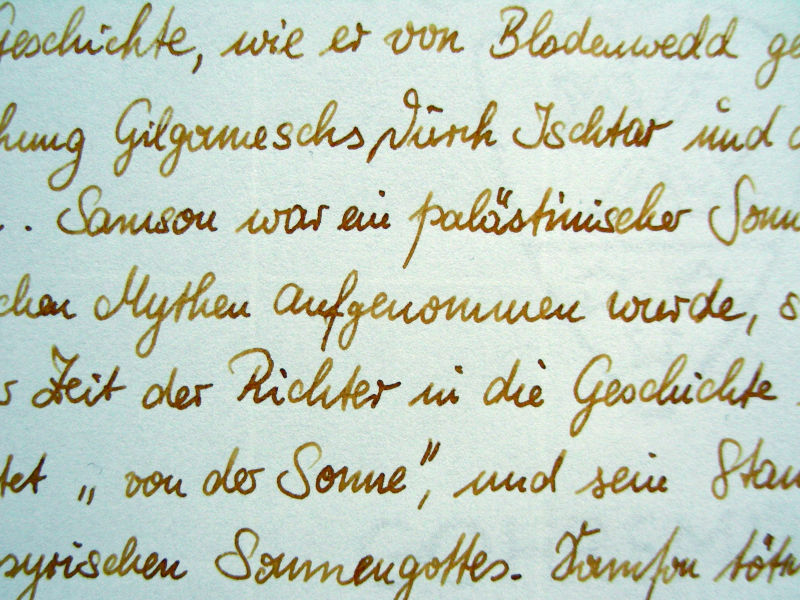 Geschichte, wie er von Blodenwedd ge
hung Gilgameschs durch Ischtar und d
. Samson war ein palästinischer Sonn
chen Mythen aufgenommen wurde, s
r Zeit der Richter in die Geschichte
tet „von der Sonne”, und sein Stam
syrischen Sonnengottes. Samson töt